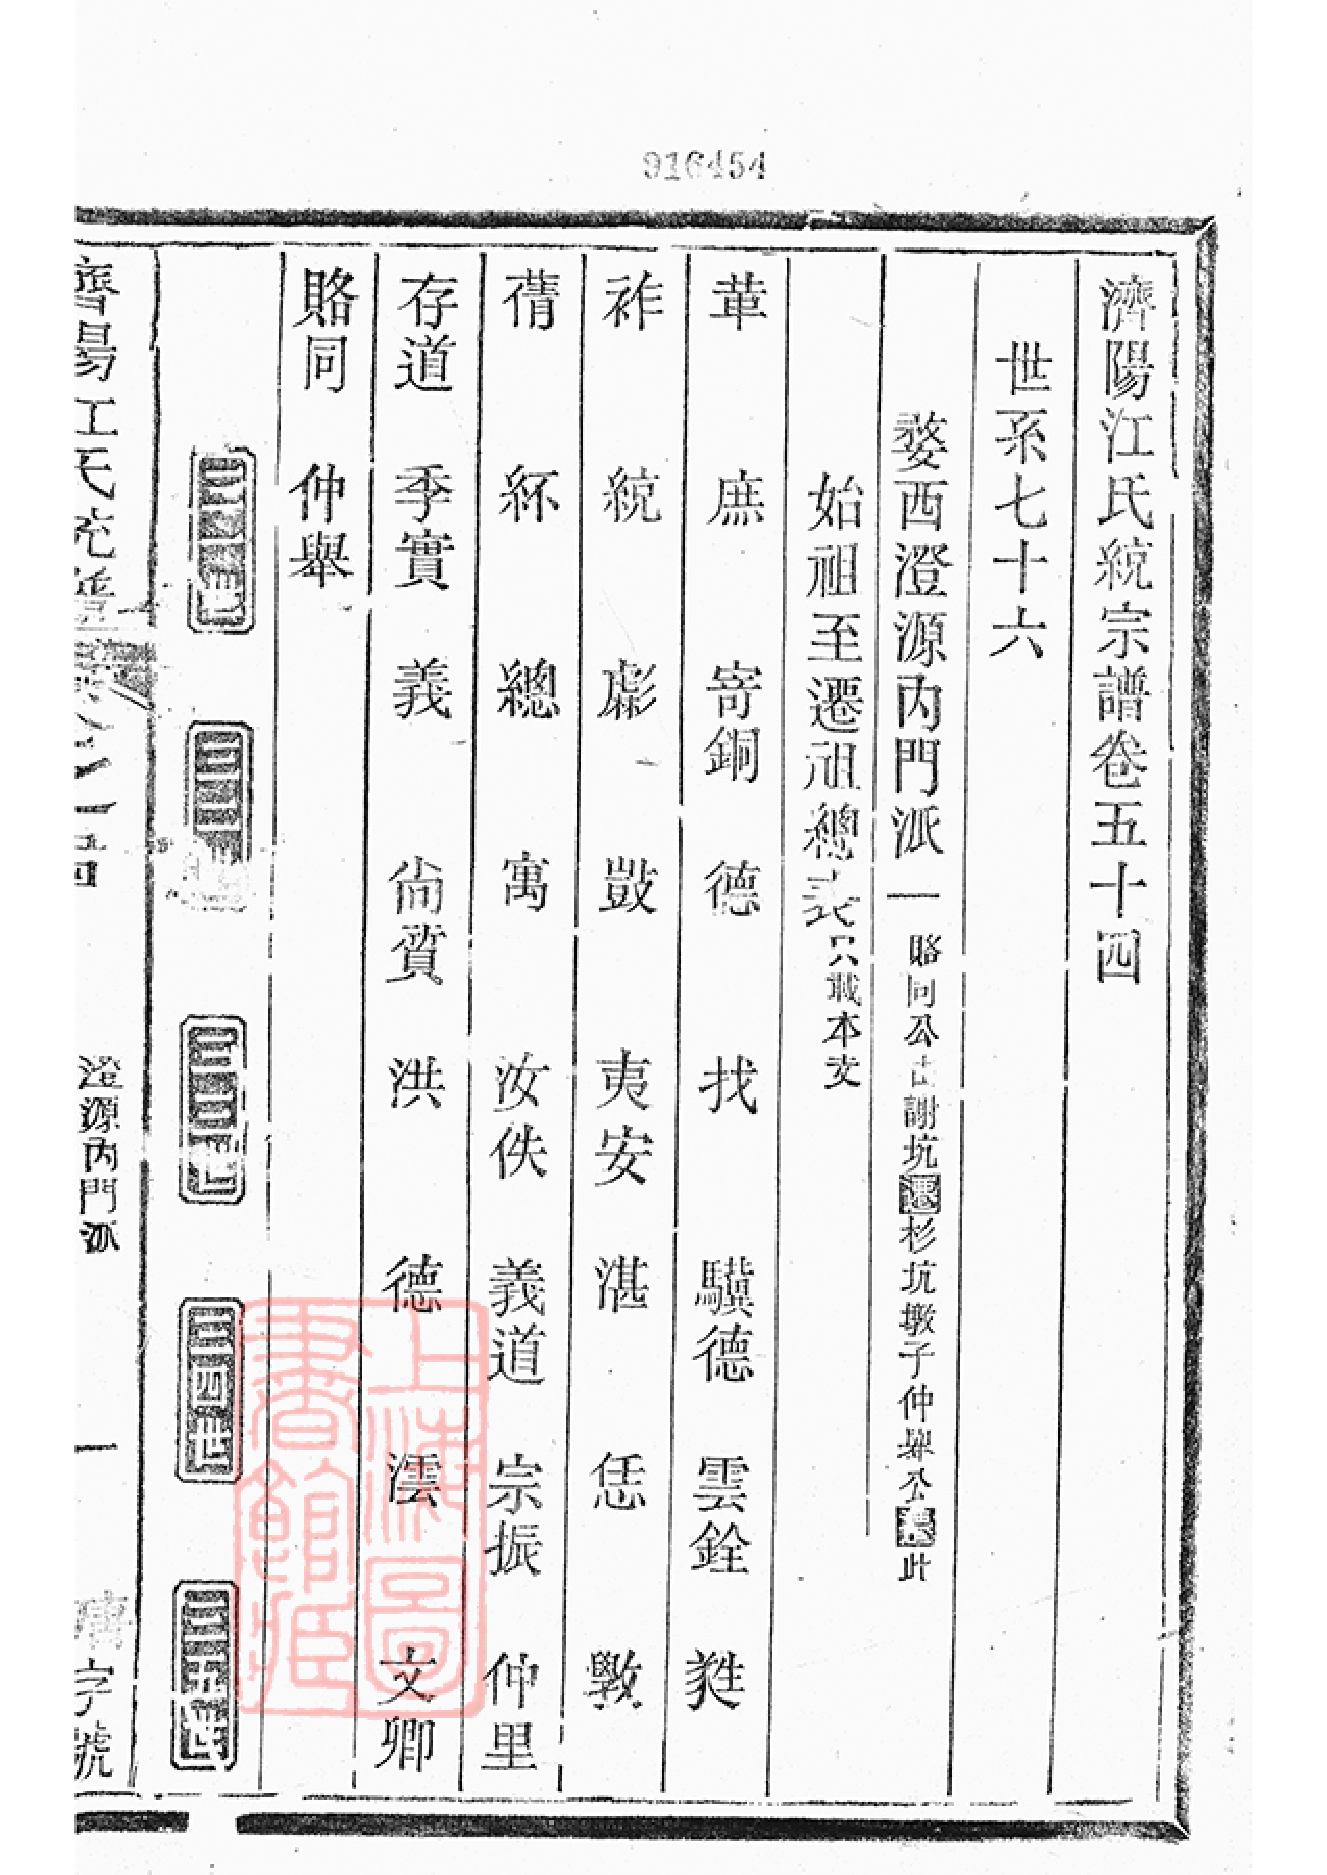 916454
濟陽江氏統宗譜卷五十四
世系七十六
婺西澄源內門派一 賂同公由謝坑遷杉坑墩子仲舉公遷此
始祖至遷祖總表只載本支
革 庶 寄銅 德 找 驥德 雲銓 甤
祚 統 彪 敱 夷安 湛 恁 斁
蒨 紑 總 寓 汝佚 義道 宗振 仲里
存道 季實 義 尚質 洪 德 澐 文卿
賂同 仲舉
三一世 三二世 三三世 三四世 三五世
濟陽江氏統譜 卷五十四 澄源內門派 一 字號
上海圖書館藏